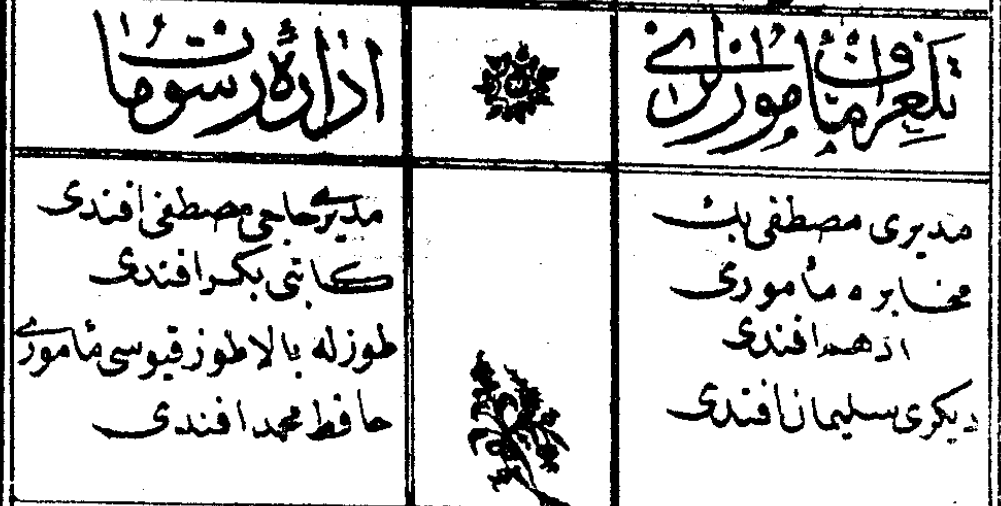 تلغراف مأمورلری
مدیری مصطفی بك
مخابره مأموری
ادهم افندی
دیكری سلیمان افندی
ادارهٔ رسومات
مدیری حاجی مصطفی افندی
كاتبی بكر افندی
طوزله بالاطوز قپوسی مأموری
حافظ محمد افندی